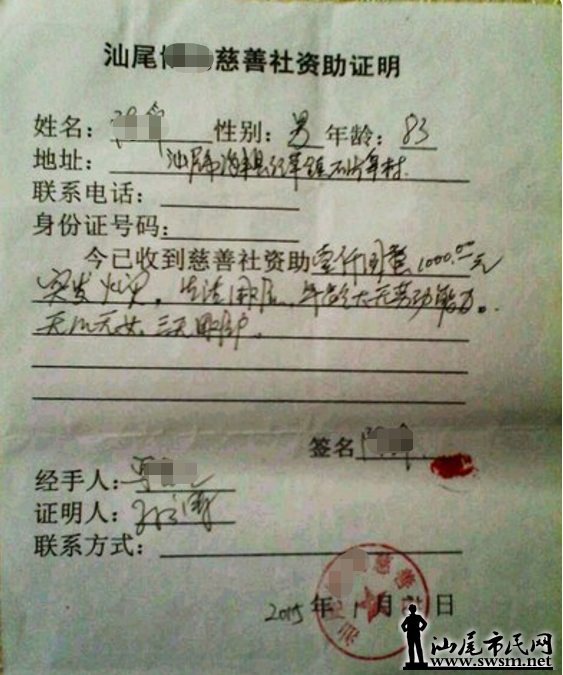 汕尾 慈善社资助证明
姓名： 性别：男 年龄：83
地址：汕尾市海丰县 镇 村
联系电话：
身份证号码：
今已收到慈善社资助壹仟圆整1000.00元
突发火灾，生活困难，年龄大无劳动能力。
无儿无女，三无困难户。
签名
经手人：
证明人：
联系方式：
慈善
2015年1月 日
汕尾市民网
www.swsm.net